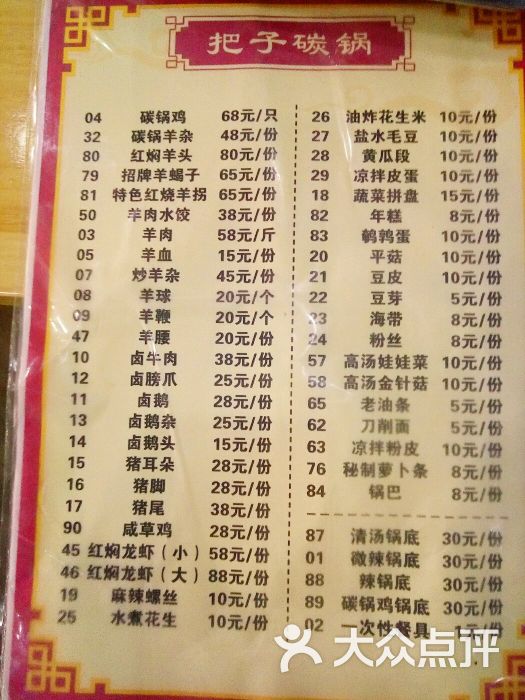 把子碳锅
04 碳锅鸡 68元/只
32 碳锅羊杂 48元/份
80 红焖羊头 80元/份
79 招牌羊蝎子 65元/份
81 特色红烧羊拐 65元/份
50 羊肉水饺 38元/份
03 羊肉 58元/斤
05 羊血 15元/份
07 炒羊杂 45元/份
08 羊球 20元/个
09 羊鞭 20元/个
47 羊腰 20元/份
10 卤牛肉 38元/份
12 卤膀爪 25元/份
11 卤鹅 28元/份
13 卤鹅杂 25元/份
14 卤鹅头 15元/份
15 猪耳朵 28元/份
16 猪脚 28元/份
17 猪尾 38元/份
90 咸草鸡 28元/份
45 红焖龙虾（小）58元/份
46 红焖龙虾（大）88元/份
19 麻辣螺丝 10元/份
25 水煮花生 10元/份
26 油炸花生米 10元/份
27 盐水毛豆 10元/份
28 黄瓜段 10元/份
29 凉拌皮蛋 10元/份
18 蔬菜拼盘 15元/份
82 年糕 8元/份
83 鹌鹑蛋 10元/份
20 平菇 10元/份
21 豆皮 10元/份
22 豆芽 5元/份
23 海带 8元/份
24 粉丝 8元/份
57 高汤娃娃菜 10元/份
58 高汤金针菇 10元/份
65 老油条 5元/份
62 刀削面 5元/份
63 凉拌粉皮 10元/份
76 秘制萝卜条 8元/份
84 锅巴 8元/份
87 清汤锅底 30元/份
01 微辣锅底 30元/份
88 辣锅底 30元/份
89 碳锅鸡锅底 30元/份
02 一次性餐具 1元/份
大众点评